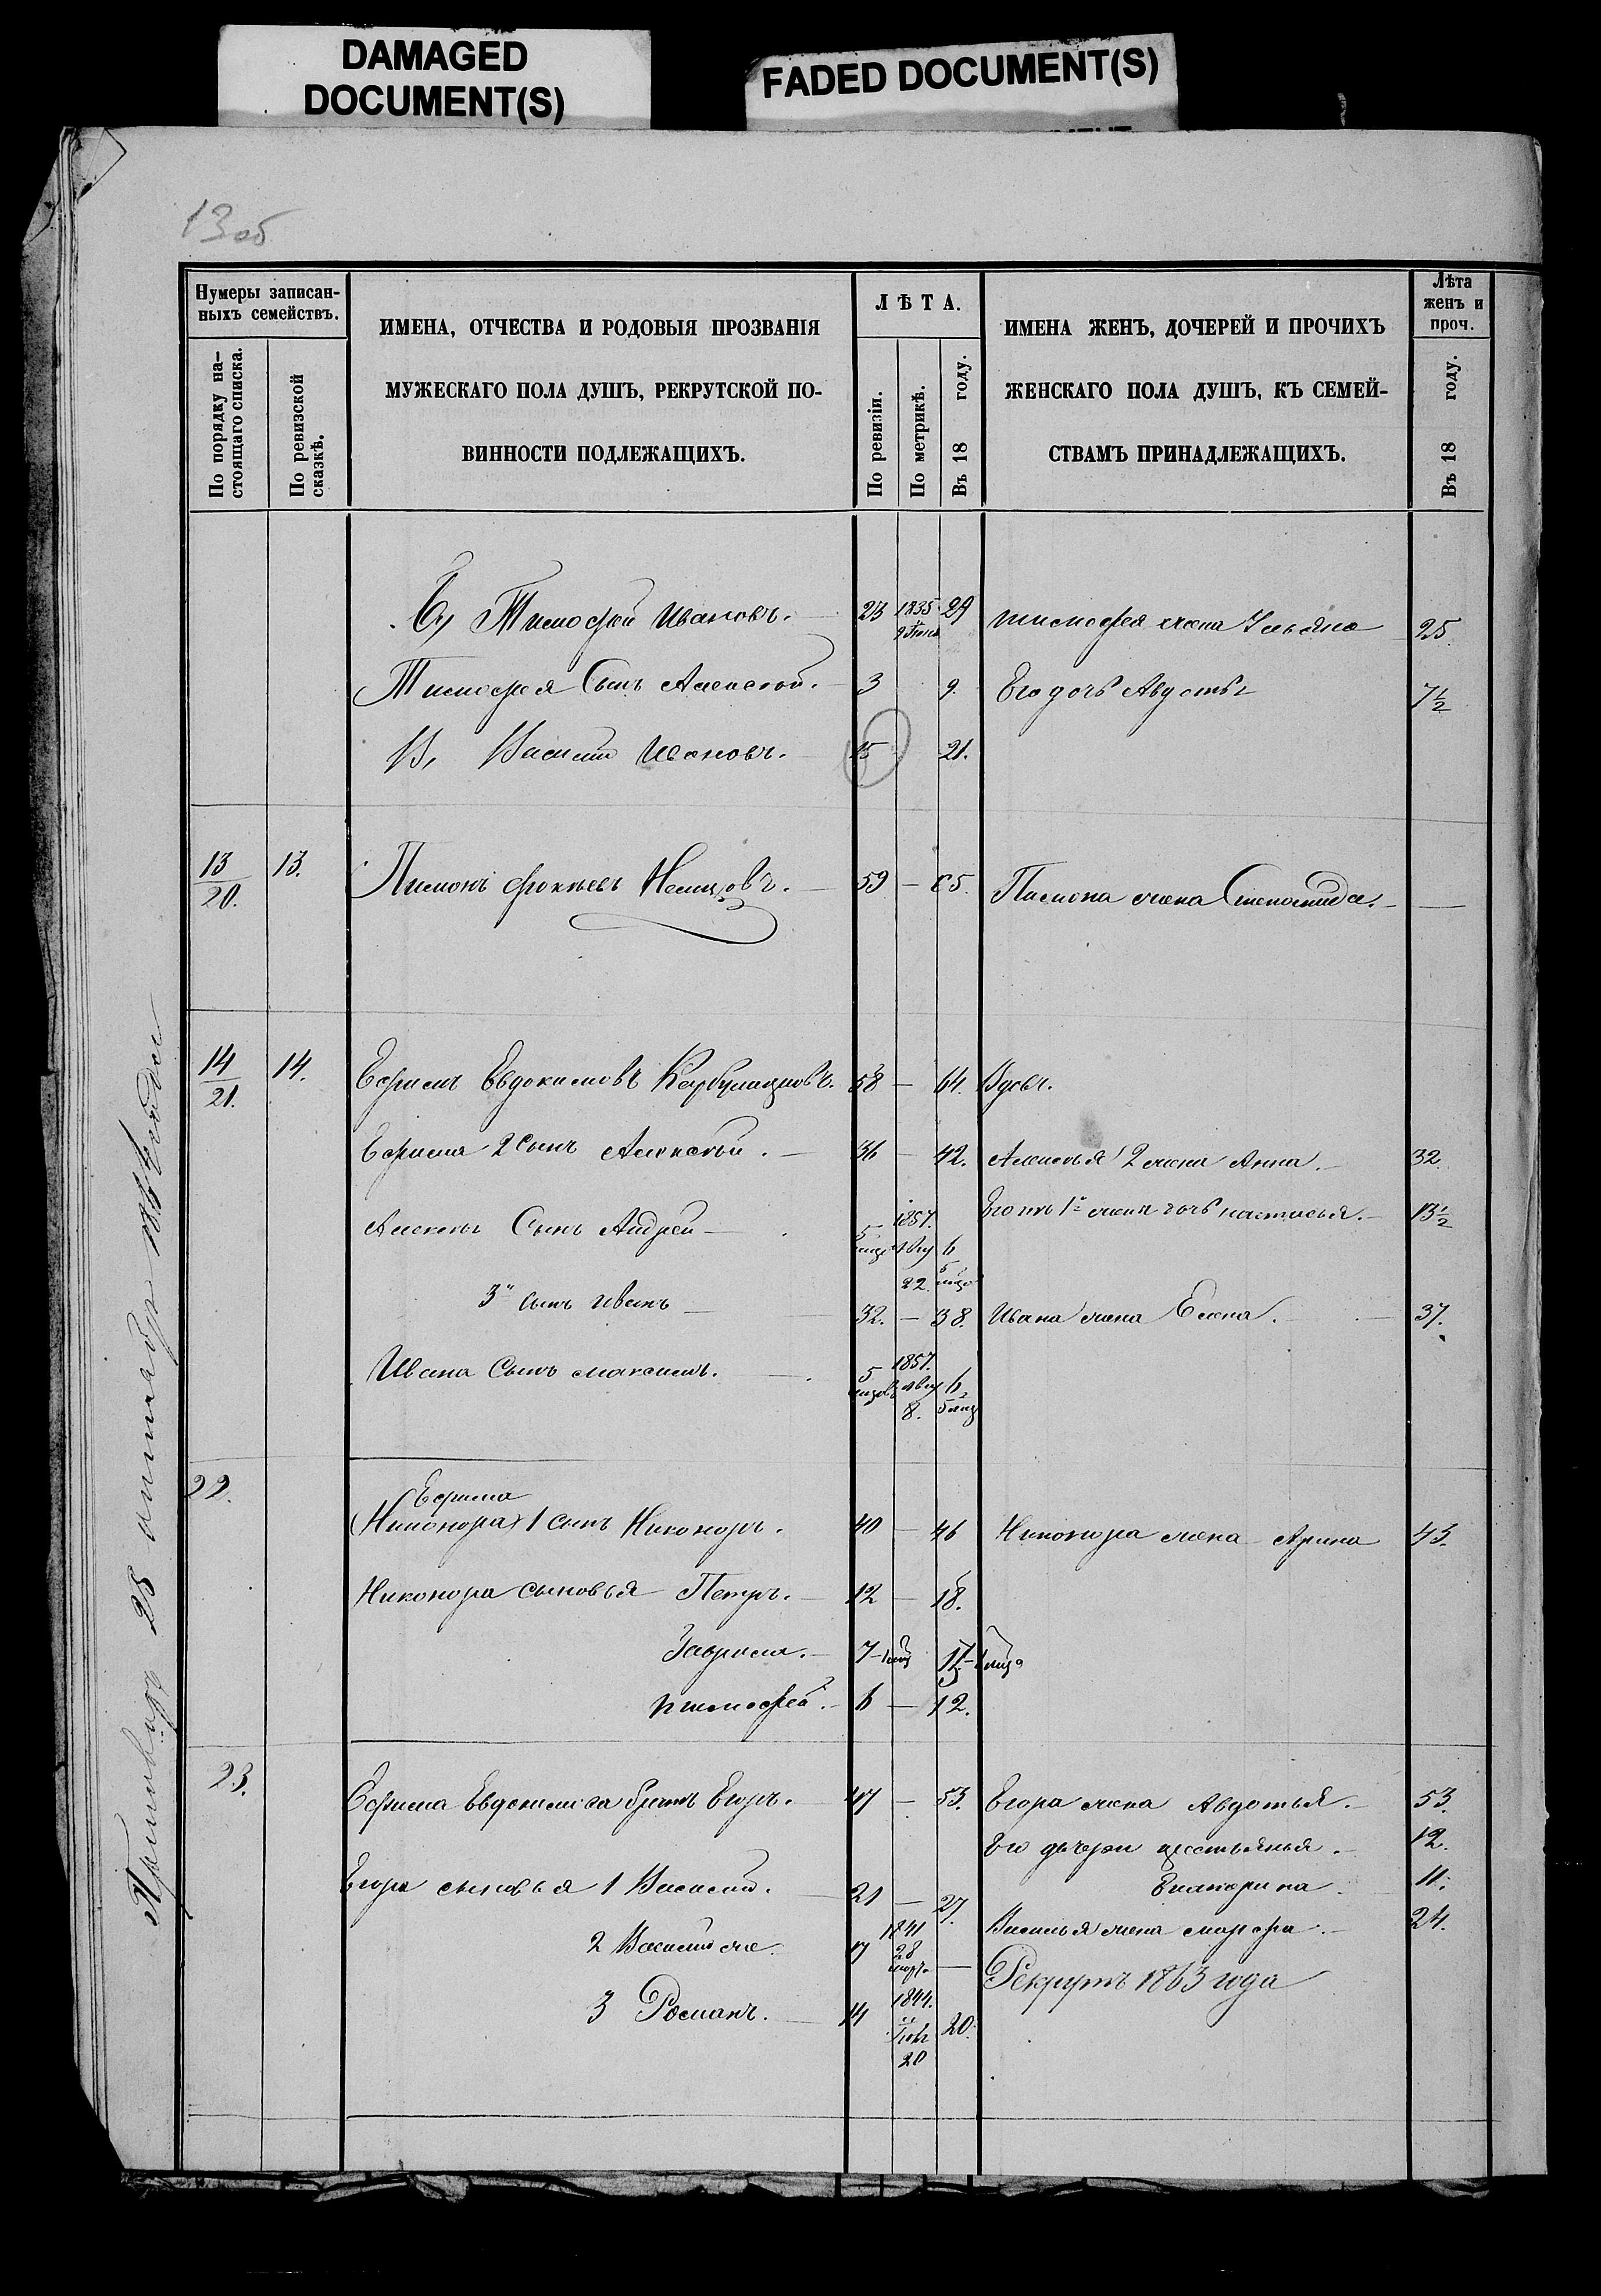 DAMAGED
DOCUMENT(S)
FADED DOCUMENT(S)
13 об
Нумеры записан-
ныхъ семействъ.
По порядку на-
стоящаго списка.
По ревизской
сказкѣ.
ИМЕНА, ОТЧЕСТВА И РОДОВЫЯ ПРОЗВАНІЯ
МУЖЕСКАГО ПОЛА ДУШЪ, РЕКРУТСКОЙ ПО-
ВИННОСТИ ПОДЛЕЖАЩИХЪ.
ЛѢТА.
По ревизіи.
По метрикѣ.
Въ 18 году.
ИМЕНА ЖЕНЪ, ДОЧЕРЕЙ И ПРОЧИХЪ
ЖЕНСКАГО ПОЛА ДУШЪ, КЪ СЕМЕЙ-
СТВАМЪ ПРИНАДЛЕЖАЩИХЪ.
Лѣта
женъ и
проч.
Въ 18 году.
Б, Тимофей Ивановъ. 23 1835 29 Тимофея жена Ульяна 25.
Тимофея Сынъ Алексей. 3 9. Его дочь Авдотья 7½
В, Василий Ивановъ. 15 21.
13/20. 13. Пимонъ Немцовъ. 59 — 65. Пимона жена Степанида. —
14/21. 14. Ефимъ Евдокимовъ 58 — 64. Вдовъ.
Ефима 2 сынъ Алексей. 36 — 42. Алексея 2 жена Анна. 32
Алексея Сынъ Андрей — 5 1857. Авгу 22. 6 5 Его отъ 1й жены дочь Настасья. 13½
3й сынъ Иванъ — 32. — 38. Ивана жена Елена. 37.
Ивана Сынъ Максимъ. 5 1857. Авгу 8. 6 5 мец
22. Ефима
(Никонора) 1 сынъ Никоноръ. 40 — 46 Никонора жена Арина 43.
Никонора сыновья Петръ. 12 — 18.
Гаврила. 7
Тимофей. 6 — 12.
23. Ефима Евдокимова братъ Егоръ. 47 — 53. Егора жена Авдотья. 53.
Его дочери 12.
Егора сыновья 1 Василий. 21 — 27. Екатерина. 11.
Василья жена Марфа. 24.
2 Василий же. 17 1841 28 март. — Рекрутъ 1863 года
3 Романъ. 14 1844. 20 20.
28 1864 года